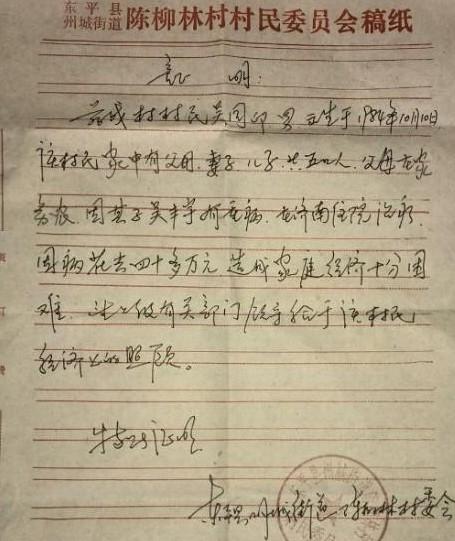 东平县
州城街道 陈柳林村村民委员会稿纸
证 明:
兹我村村民吴同印 男 生于1984年10月10日,
该村民家中有父母、妻子、儿子,共五口人,父母在家
务农,因其子吴丰学患病,在济南住院治病,
因病花去四十多万元,造成家庭经济十分困
难,望上级有关部门领导给于该村民
经济上的照顾。
特此证明
东平县州城街道陈柳林村委会